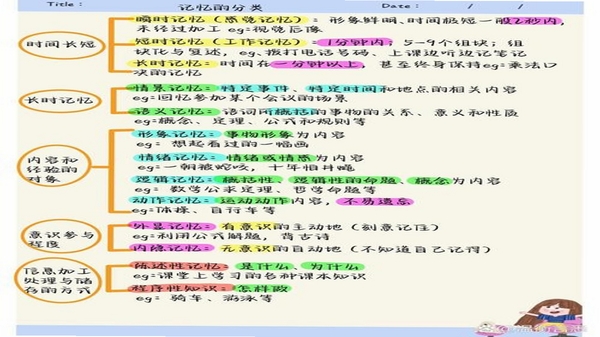 Title: 记忆的分类 Date: / /
时间长短
瞬时记忆(感觉记忆): 形象鲜明、时间极短一般2秒内,
未经过加工 eg:视觉后像
短时记忆(工作记忆): 1分钟内; 5-9个组块; 组
块化与复述, eg、拨打电话号码、上课边听边记笔记
长时记忆: 时间在一分钟以上, 甚至终身保持eg:乘法口
次的记忆
长时记忆
情景记忆: 特定事件、特定时间和地点的相关内容
eg:回忆参加某个会议的场景
语义记忆: 语词所概括的事物的关系、意义和性质
eg:概念、定理、公式和规则等
内容和
经验的
对象
形象记忆: 事物形象为内容
eg: 想起看过的一幅画
情绪记忆: 情绪或情感为内容
eg:一朝被蛇咬, 十年怕井绳
逻辑记忆: 概括性、逻辑性的命题、概念为内容
eg: 数学公求定理、哲学命题等
动作记忆: 运动动作内容, 不易遗忘
eg:体操、自行车等
意识参与
程度
外显记忆: 有意识的主动地(刻意记住)
eg:利用公式解题, 背古诗
内隐记忆: 无意识的自动地(不知道自己记得)
信息加工
处理与储
存的方式
陈述性记忆: 是什么、为什么
eg:课堂上学习的各种课本知识
程序性知识: 怎样做
eg: 骑车、游泳等